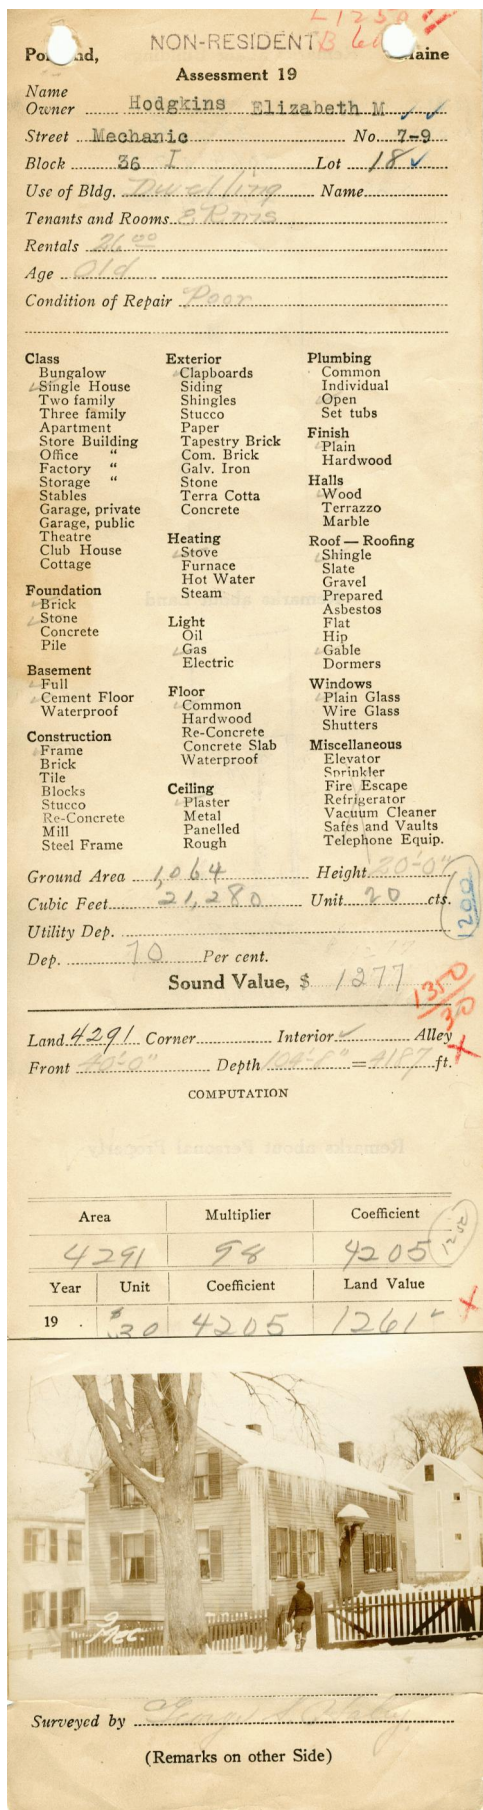 L1250
NON-RESIDENT B
Po nd, aine
Assessment 19
Name
Owner Hodgkins Elizabeth M
Street Mechanic No. 7-9
Block 36 I Lot 18
Use of Bldg. Dwelling Name
Tenants and Rooms 8 Rms
Rentals 26 00
Age Old
Condition of Repair Poor
Class
Bungalow
Single House
Two family
Three family
Apartment
Store Building
Office "
Factory "
Storage "
Stables
Garage, private
Garage, public
Theatre
Club House
Cottage
Foundation
Brick
Stone
Concrete
Pile
Basement
Full
Cement Floor
Waterproof
Construction
Frame
Brick
Tile
Blocks
Stucco
Re-Concrete
Mill
Steel Frame
Exterior
Clapboards
Siding
Shingles
Stucco
Paper
Tapestry Brick
Com. Brick
Galv. Iron
Stone
Terra Cotta
Concrete
Heating
Stove
Furnace
Hot Water
Steam
Light
Oil
Gas
Electric
Floor
Common
Hardwood
Re-Concrete
Concrete Slab
Waterproof
Ceiling
Plaster
Metal
Panelled
Rough
Plumbing
Common
Individual
Open
Set tubs
Finish
Plain
Hardwood
Halls
Wood
Terrazzo
Marble
Roof — Roofing
Shingle
Slate
Gravel
Prepared
Asbestos
Flat
Hip
Gable
Dormers
Windows
Plain Glass
Wire Glass
Shutters
Miscellaneous
Elevator
Sprinkler
Fire Escape
Refrigerator
Vacuum Cleaner
Safes and Vaults
Telephone Equip.
Ground Area 1,064 Height 20'-0"
Cubic Feet 21,280 Unit 20 cts.
1200
Utility Dep.
Dep. 70 Per cent.
Sound Value, $ 1277
1350
30
Land 4291 Corner Interior Alley
Front 40'-0" Depth 104'-8" = 4187 ft.
COMPUTATION
Area Multiplier Coefficient
4291 98 4205
1250
Year Unit Coefficient Land Value
19 $.30 4205 1261
Surveyed by
(Remarks on other Side)